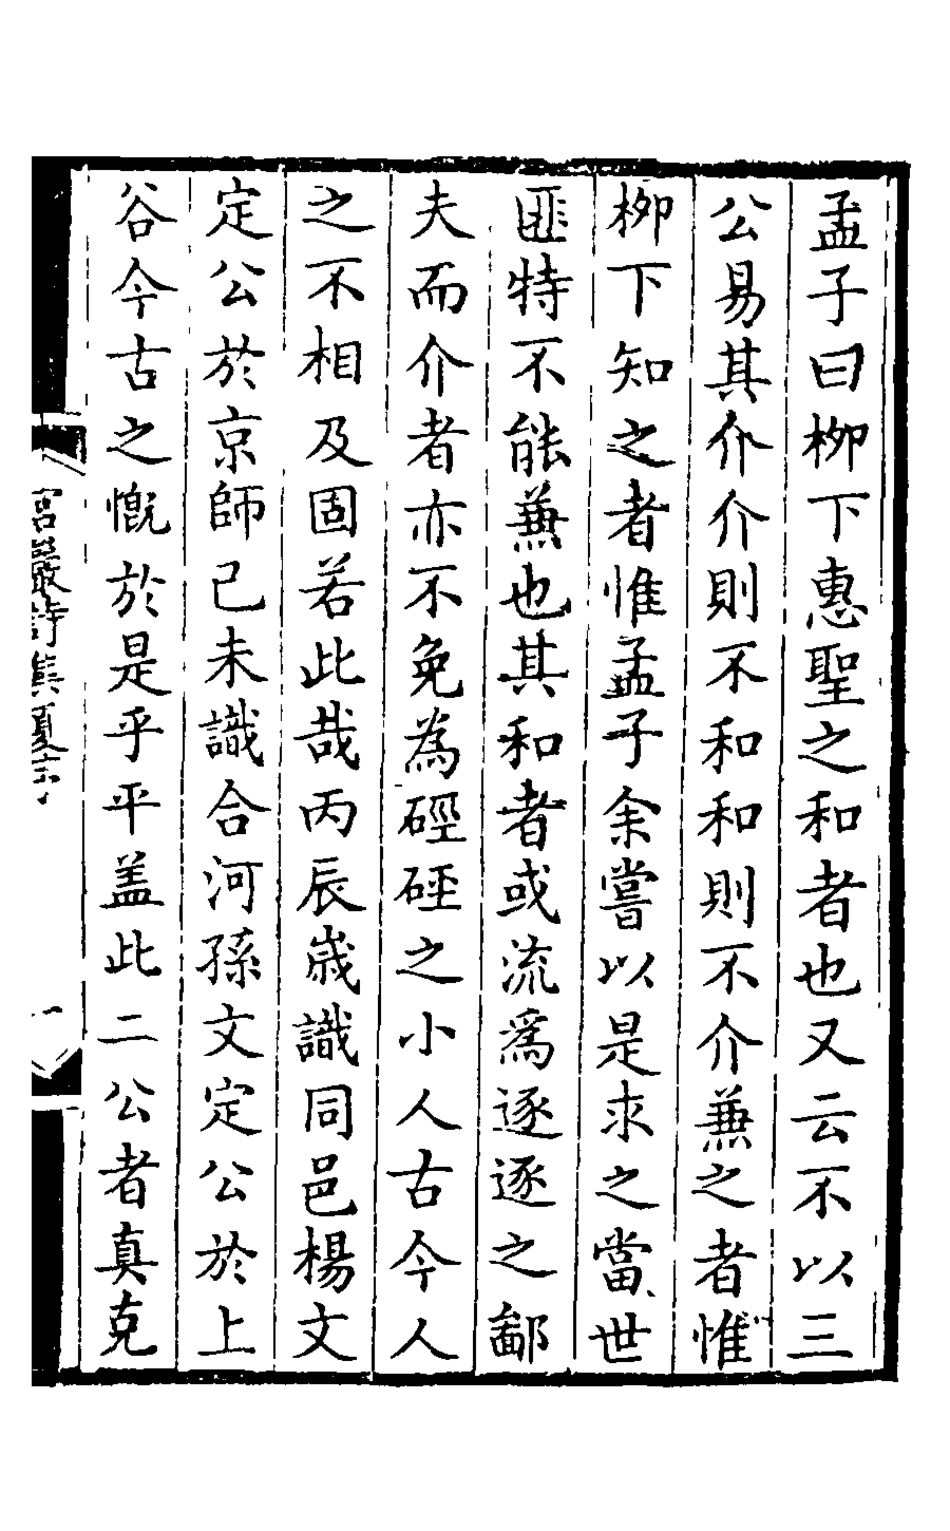 孟子曰柳下惠聖之和者也又云不以三
公易其介介則不和和則不介兼之者惟
柳下知之者惟孟子余嘗以是求之當世
匪特不能兼也其和者或流爲逐逐之鄙
夫而介者亦不免為硜硜之小人古今人
之不相及固若此哉丙辰歲識同邑楊文
定公於京師己未識合河孫文定公於上
谷今古之慨於是乎平盖此二公者真克
詩集夏序
一